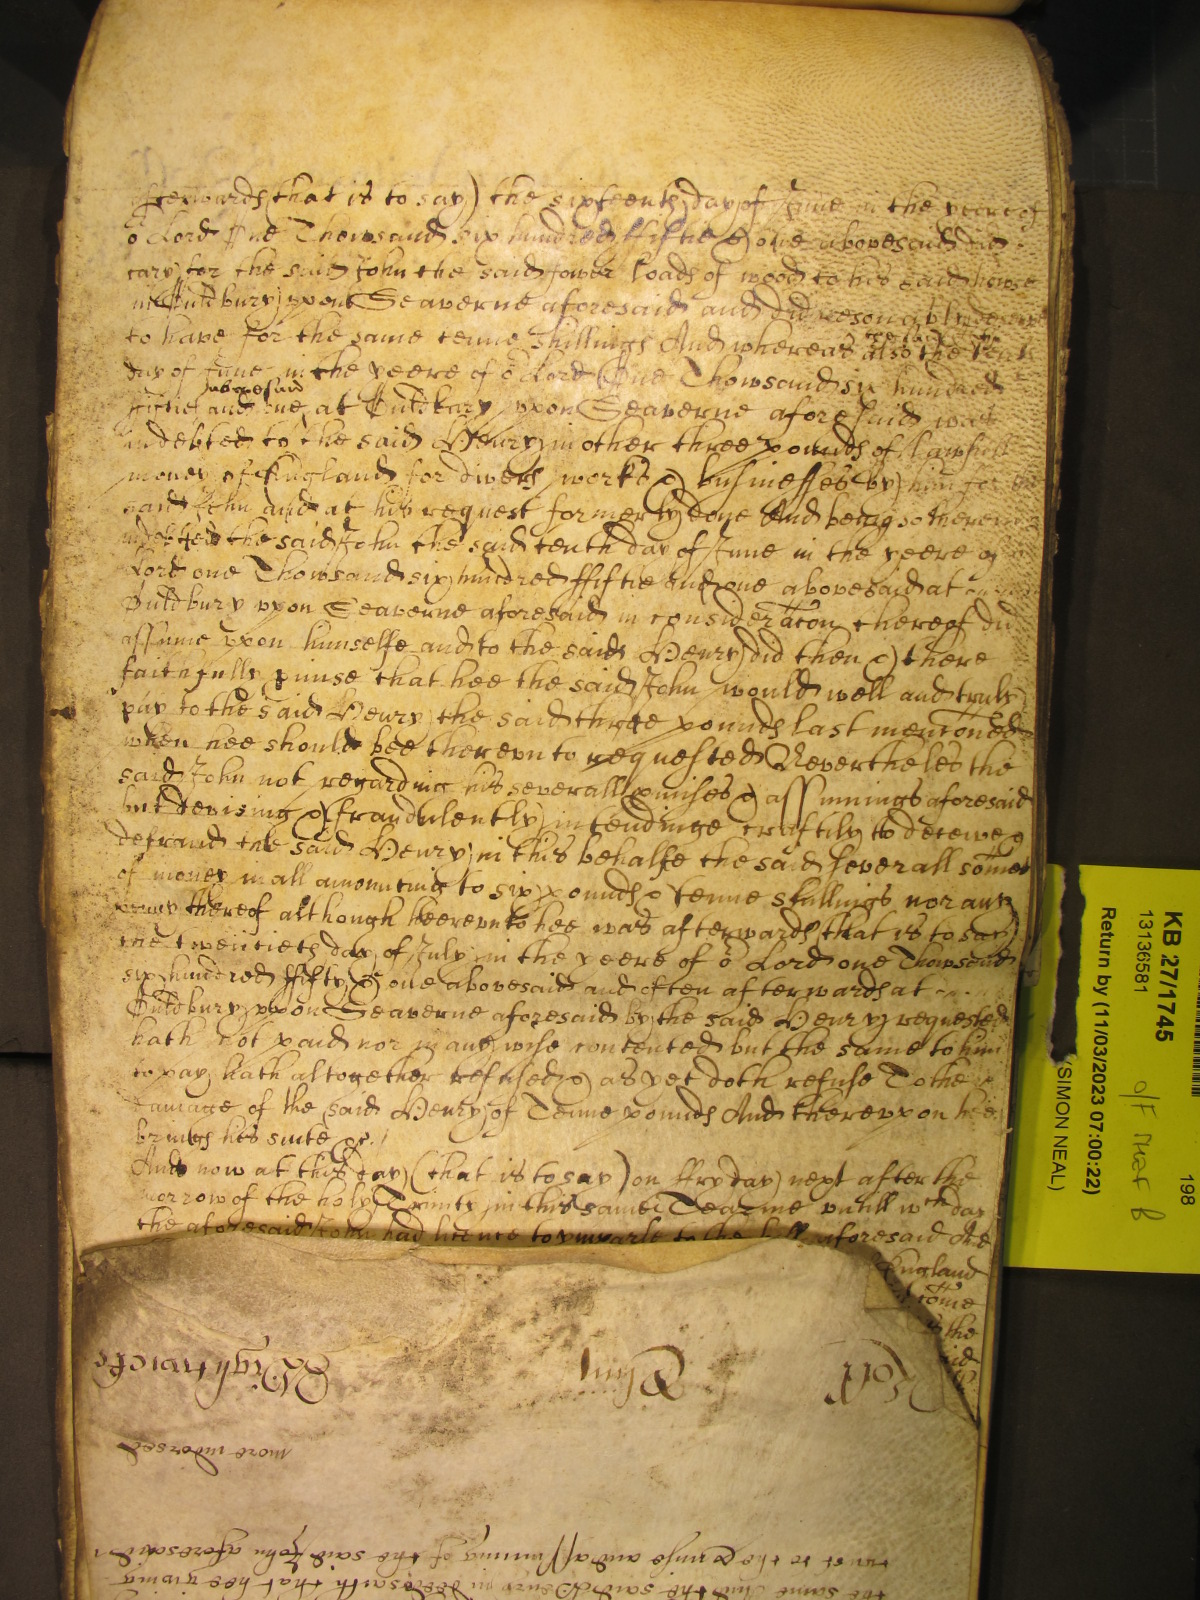 afterwards (that is to say) the sixteenth day of June in the yeere of
o Lord One Thowsand six hundred ffiftie & one abovesaid did
cary for the said John the said fower loads of wood to his said howse
in Buldbury vpon Seaverne aforesaid and did reasonably deserve
to have for the same tenne shillings And whereas also the tenth
day of June in the yeere of o Lord One Thowsand six hundred
fiftie and one abovesaid at Buldbury vpon Seaverne aforesaid was
indebted to the said Henry in other three pounds of lawfull
money of England for divers works & businesses by him for the
said John and at his request formerly done And being so therein
indebted the said John the said tenth day of June in the yeere of
Lord one Thowsand six hundred ffiftie and one abovesaid at
Buldbury vpon Seaverne aforesaid in consideracon thereof did
assume vpon himselfe and to the said Henry did then & there
faithfully pmise that hee the said John would well and truly
pay to the said Henry the said three pounds last menconed
when hee should bee therevnto requested Nevertheles the
said John not regarding his severall pmises & assumings aforesaid
but devising & fraudulently intendinge craftily to deceive &
defraud the said Henry in this behalfe the said severall somes
of money in all amounting to six pounds & tenne shillings nor any
penny thereof although heerevnto hee was afterwards (that is to say)
the twentieth day of July in the yeere of o Lord one Thowsand
six hundred ffifty & one abovesaid and often afterwards at
Buldbury vpon Seaverne aforesaid by the said Henry requested
hath not paid nor in any wise contented but the same to him
to pay hath altogether refused & as yet doth refuse To the
damage of the said Henry of Tenne pounds And therevpon hee
brings his suite &c.
And now at this day (that is to say) on ffryday next after the
morrow of the holy Trinity in this same Tearme vntill wch day
the aforesaid John had licence to imparle to the bill aforesaid And
England
come
the
Wightwicke
more indorsed
the pmise and assuming of the said John aforesaid
the same And the said Henry in deed saith that hee
KB 27/1745
13136581
Return by (11/03/2023 07:00:22)
(SIMON NEAL)
198